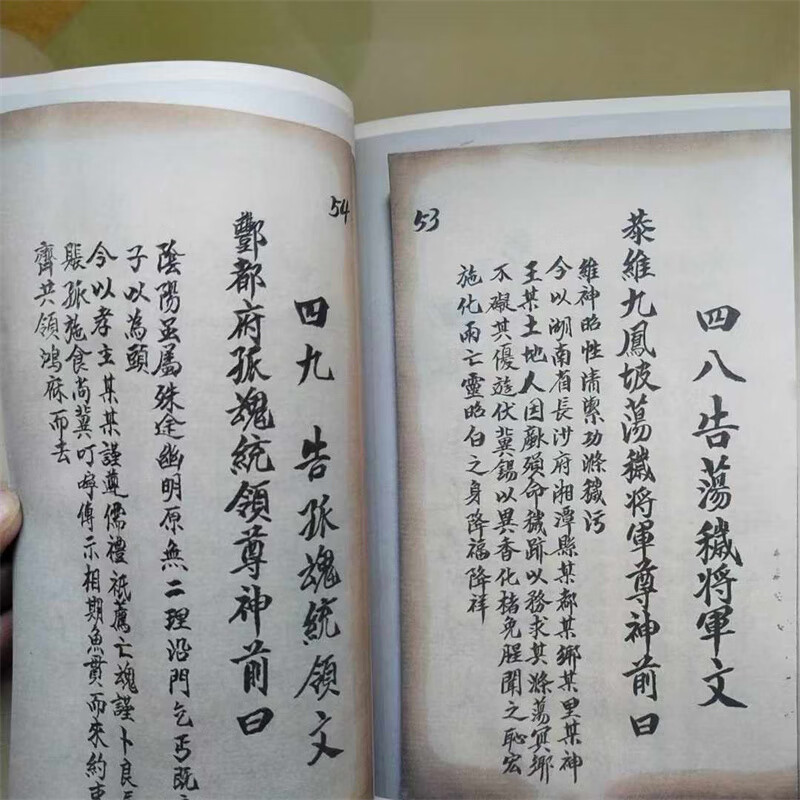 53
四八告蕩穢將軍文
恭維九鳳坡蕩穢將軍尊神前曰
維神昭性清潔功滌穢污
今以湖南省長沙府湘潭縣某都某鄉某里某神
王某土地人因獻殞命穢跡以務求其滌蕩冥鄉
不礙其優遊伏冀錫以異香化楮免腥聞之恥宏
施化雨亡靈昭白之身降福降祥
54
四九 告孤魂統領文
酆都府孤魂統領尊神前曰
陰陽並屬殊途幽明原無二理沿門乞丐既
子以為頭
今以孝主某某謹遵儒禮祇薦亡魂謹卜良
賑孤施食尚冀叮嚀傳示相期魚貫而來約束
齊共領鴻庥而去